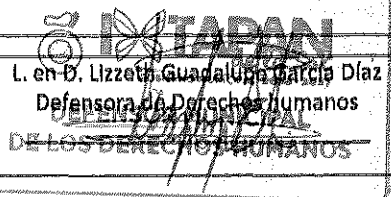 IXTAPAN
L. en D. Lizzeth Guadalupe García Díaz
Defensora de Derechos humanos
DEFENSORÍA MUNICIPAL
DE LOS DERECHOS HUMANOS